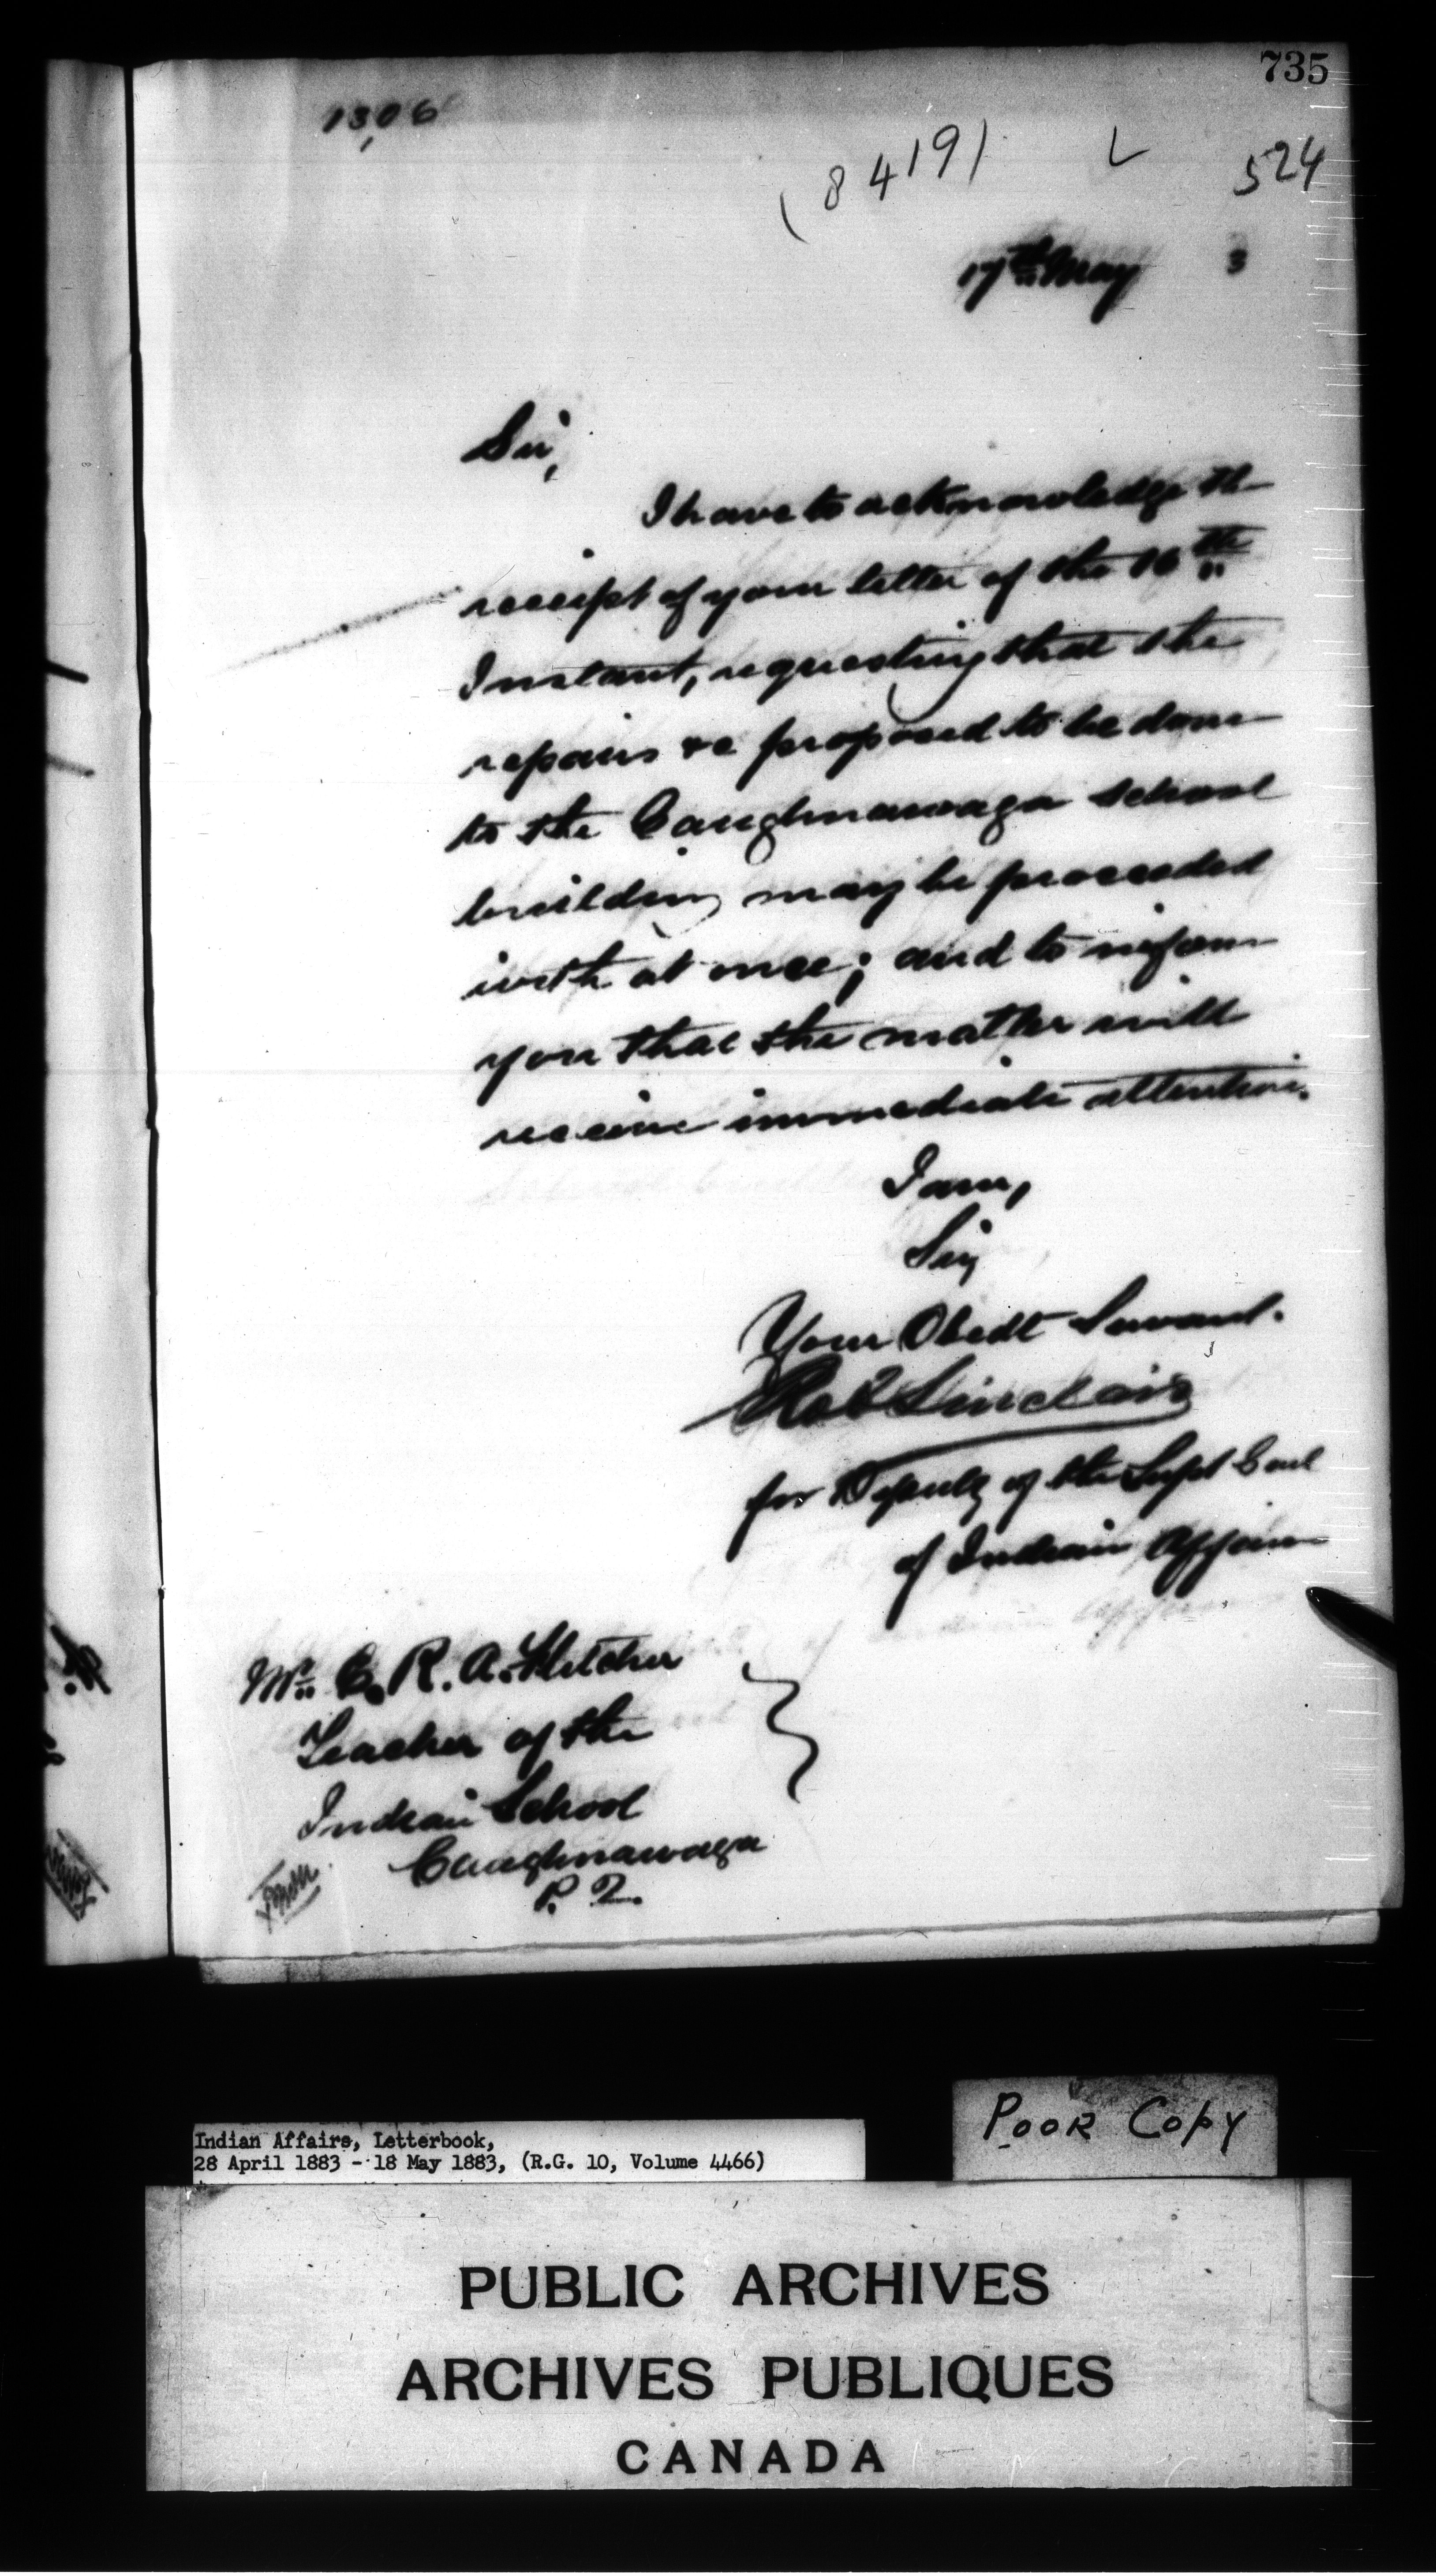 735
1306
(8419)
524
17th May 3
Sir,
I have to acknowledge the
receipt of your letter of the 16th
Instant, requesting that the
repairs &c proposed to be done
to the Caughnawaga School
building may be proceeded
with at once; and to inform
you that the matter will
receive immediate attention.
I am,
Sir,
Your Obedt Servant.
Robt Sinclair
for Deputy of the Supt Genl
of Indian Affairs
Mr. E. R. A. Fletcher
Teacher of the
Indian School
Caughnawaga
P. Q.
Poor Copy
Indian Affairs, Letterbook,
28 April 1883 - 18 May 1883, (R.G. 10, Volume 4466)
PUBLIC ARCHIVES
ARCHIVES PUBLIQUES
CANADA